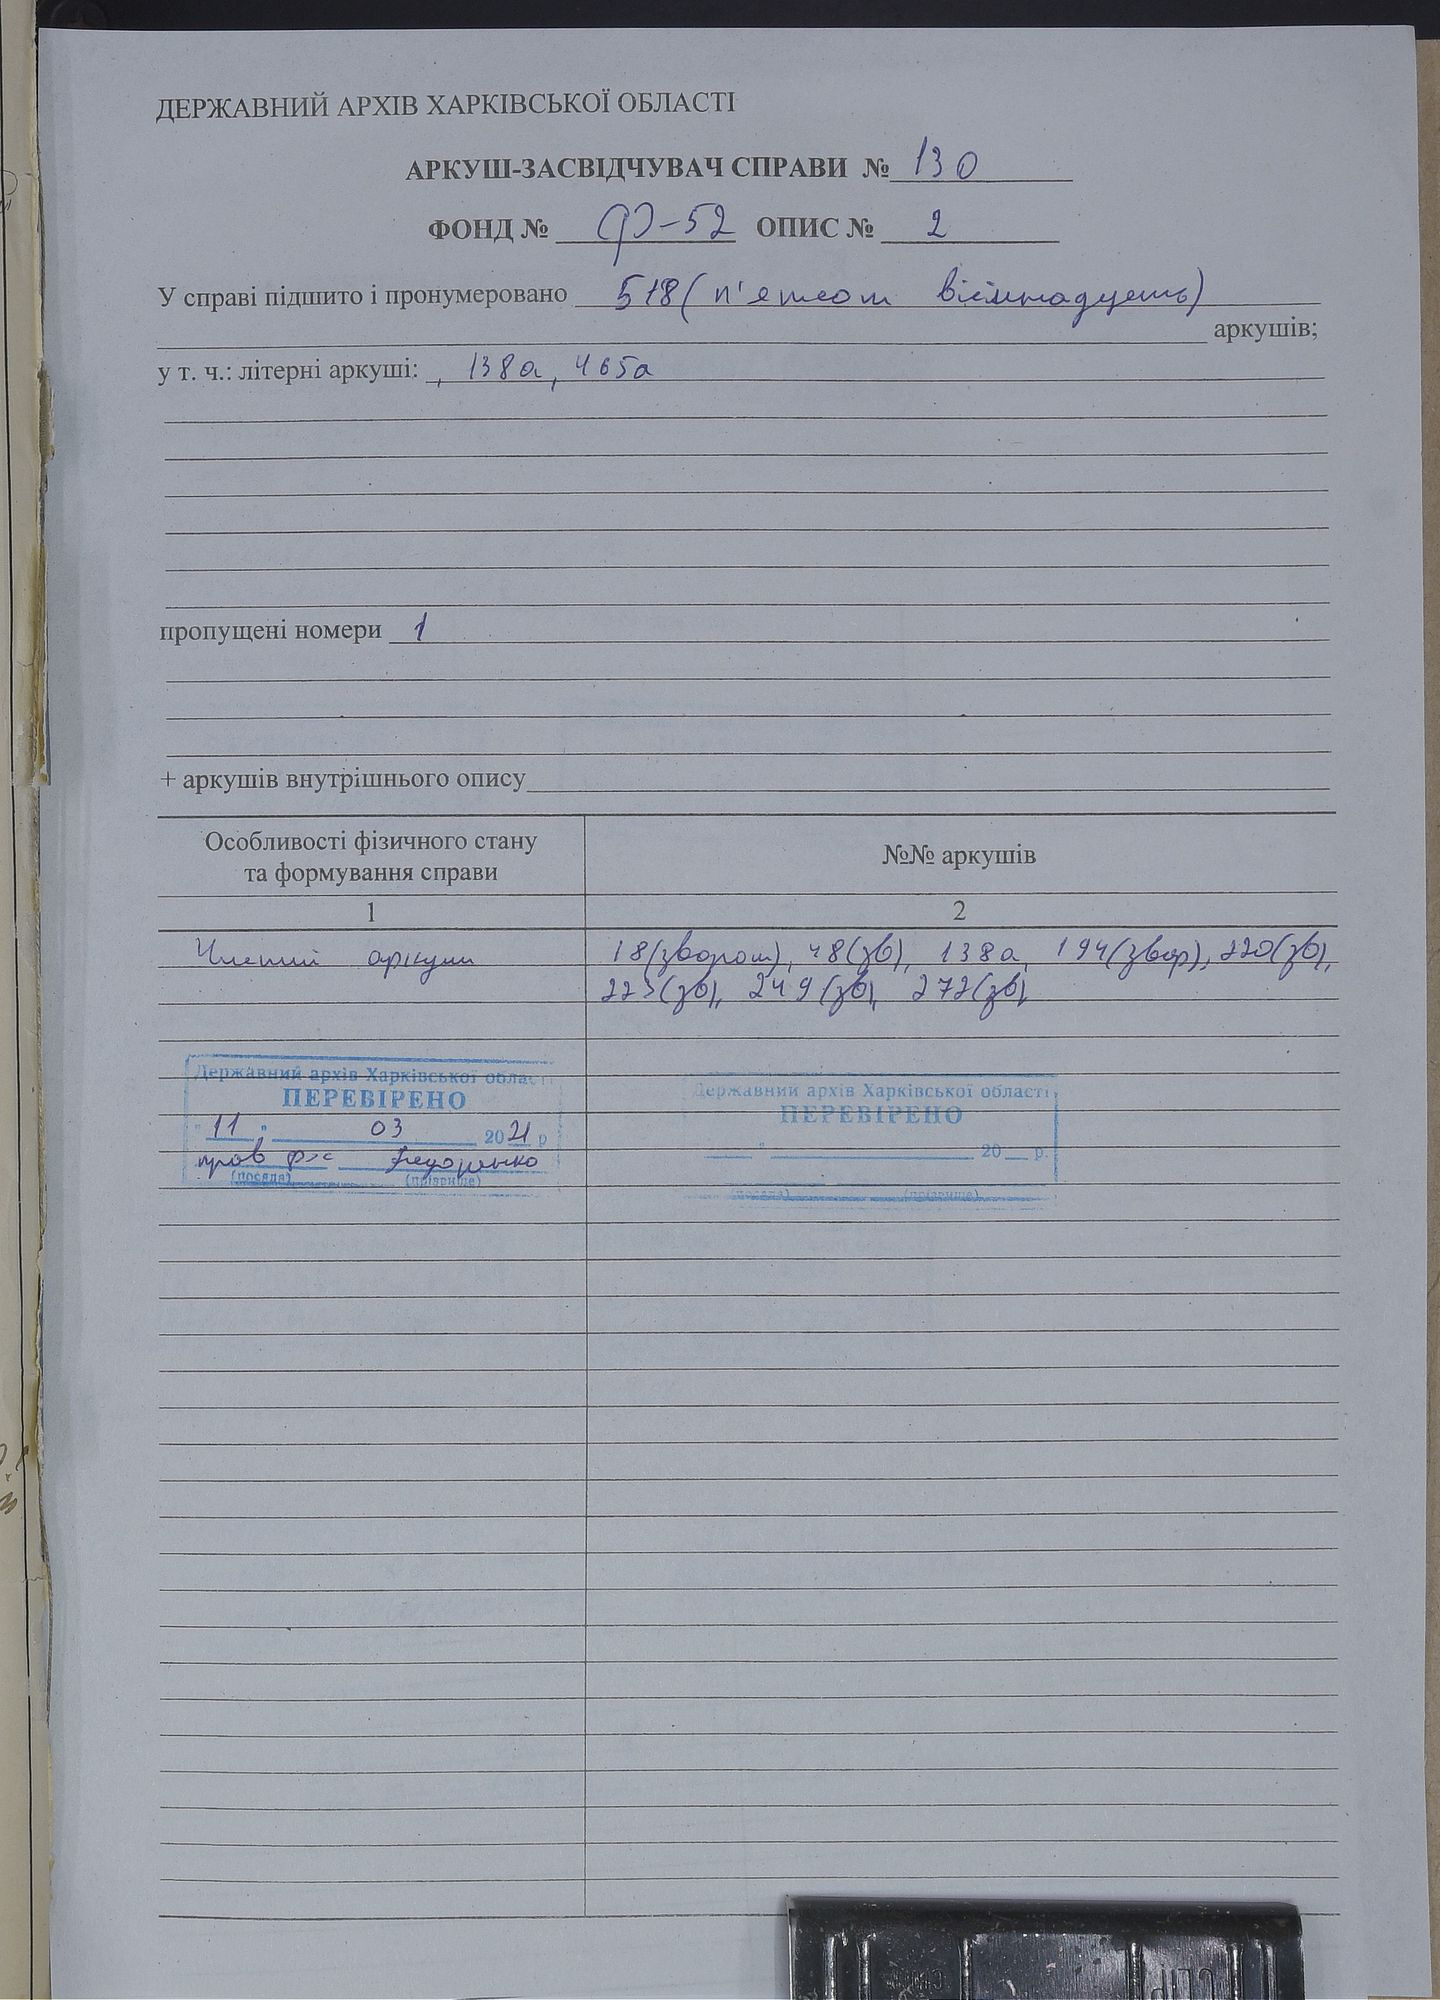 ДЕРЖАВНИЙ АРХІВ ХАРКІВСЬКОЇ ОБЛАСТІ
АРКУШ-ЗАСВІДЧУВАЧ СПРАВИ № 130
ФОНД № Ф-52 ОПИС № 2
У справі підшито і пронумеровано 518 (п'ятсот вісімнадцять)
аркушів;
у т. ч.: літерні аркуші: , 138а, 465а
пропущені номери 1
+ аркушів внутрішнього опису
Особливості фізичного стану
та формування справи
№№ аркушів
1
2
Чистий аркуш
18(зворот), 48(зв), 138а, 194(звор), 220(зв),
223(зв), 249(зв), 272(зв)
Державний архів Харківської області
ПЕРЕВІРЕНО
"11" 03 2021 р
пров Федоренко
(посада) (прізвище)
Державний архів Харківської області
ПЕРЕВІРЕНО
" 20 р.
(посада) (прізвище)